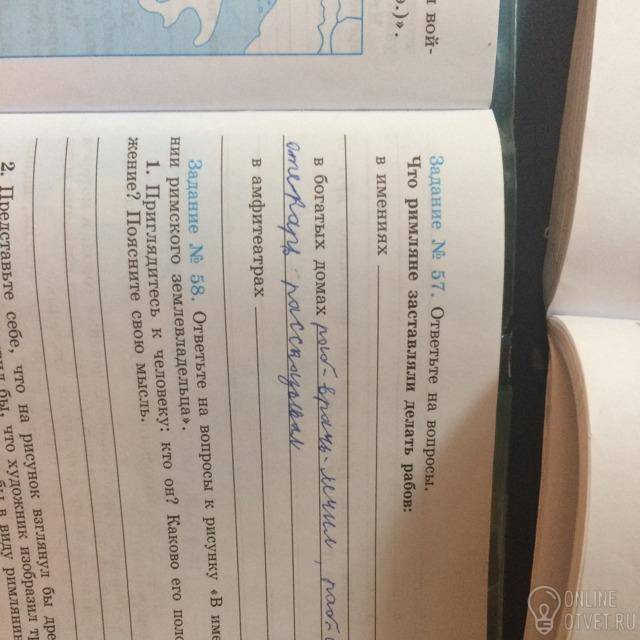 и вой-
о.)».
Задание № 57. Ответьте на вопросы.
Что римляне заставляли делать рабов:
в имениях
в богатых домах раб-врачь лечил, раб-
отекарь рассказывал
в амфитеатрах
Задание № 58. Ответьте на вопросы к рисунку «В име
нии римского землевладельца».
1. Приглядитесь к человеку: кто он? Каково его поло
жение? Поясните свою мысль.
2. Представьте себе, что на рисунок взглянул бы дре
бы, что художник изобразил
бы в виду римлянин
ONLINE
OTVET.RU